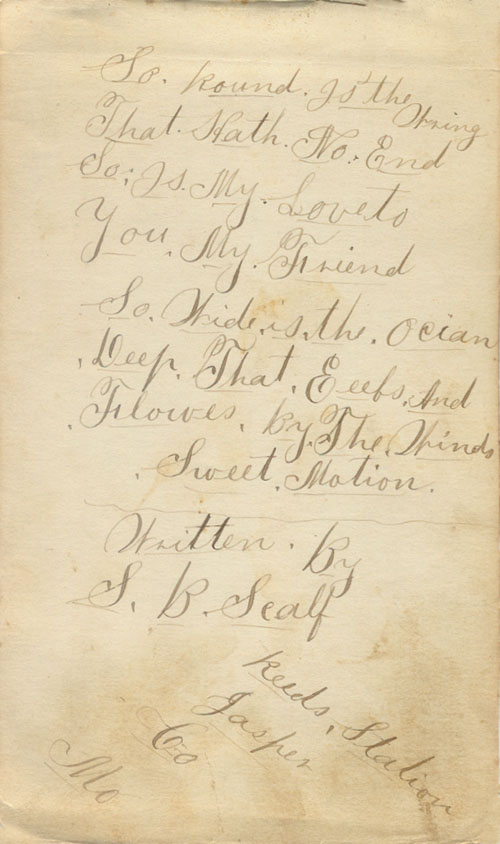 So. Round. Is the Wring
That. Hath. No. End
So. Is. My. Love to
You. My. Friend
So. Wide. is. the. Ocian
Deep. That. Eebs. And
Flowes. By. The. Winds
Sweet. Motion.
Written. By
S. B. Scalf
Reeds, Station
Jasper
Co
Mo